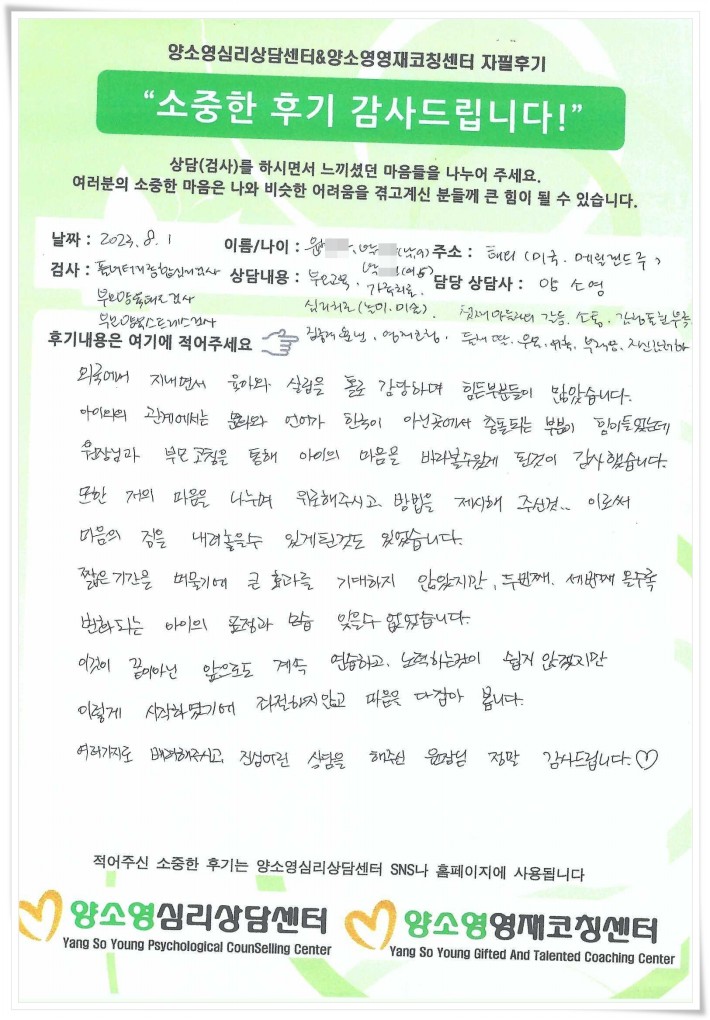 양소영심리상담센터&양소영영재코칭센터 자필후기
“소중한 후기 감사드립니다!”
상담(검사)를 하시면서 느끼셨던 마음들을 나누어 주세요.
여러분의 소중한 마음은 나와 비슷한 어려움을 겪고계신 분들께 큰 힘이 될 수 있습니다.
날짜 : 2023. 8. 1 이름/나이 : 주소 : 해외 (미국. 메릴랜드주)
검사 : 상담내용 : 부모교육, 가족치료 담당 상담사 : 양 소영
부모양육태도검사 심리치료 (놀이.미술)
부모양육스트레스검사
후기내용은 여기에 적어주세요
외국에서 지내면서 육아와 살림을 홀로 감당하며 힘든부분들이 많았습니다.
아이와의 관계에서는 문화와 언어가 한국이 아닌곳에서 충돌되는 부분이 힘이들었는데
원장님과 부모코칭을 통해 아이의 마음을 바라볼수있게 된것이 감사했습니다.
또한 저의 마음을 나누며 위로해주시고, 방법을 제시해 주신것.. 이로써
마음의 짐을 내려놓을수 있게된것도 있었습니다.
짧은기간을 머물기에 큰 효과를 기대하지 않았지만, 두번째. 세번째 올수록
변화되는 아이의 표정과 모습 잊을수 없었습니다.
이것이 끝이아닌 앞으로도 계속 연습하고, 노력하는것이 쉽지 않겠지만
이렇게 시작하였기에 좌절하지않고 마음을 다잡아 봅니다.
여러가지로 배려해주시고, 진심어린 상담을 해주신 원장님 정말 감사드립니다.♡
적어주신 소중한 후기는 양소영심리상담센터 SNS나 홈페이지에 사용됩니다
양소영심리상담센터
Yang So Young Psychological CounSelling Center
양소영영재코칭센터
Yang So Young Gifted And Talented Coaching Center